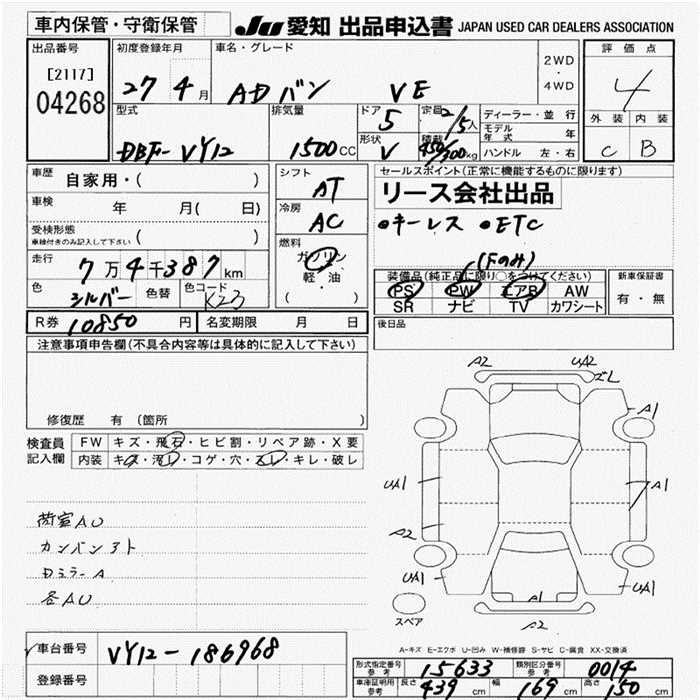 車内保管・守衛保管
JU 愛知 出品申込書 JAPAN USED CAR DEALERS ASSOCIATION
出品番号
[2117]
04268
初度登録年月
27 4 月
車名・グレード
ADバン VE
2WD
・
4WD
評価点
4
外装 内装
C B
型式
DBF-VY12
排気量
1500 CC
ドア
5
形状
V
定員
2/5 人
積載
450/300 kg
ディーラー・並行
モデル年式 年
ハンドル 左・右
車歴 自家用・( )
車検 年 月( 日)
受検形態
車検付きのみ記入して下さい ( )
走行 7万4千387 km
色 シルバー 色替 色コード K23
シフト
AT
冷房
AC
燃料
ガソリン
・
軽・油
( )
セールスポイント(正常に機能するものに限ります)
リース会社出品
●キーレス ●ETC
(Fのみ)
装備品(純正品に限り○をつけてください)
PS PW エアB AW
SR ナビ TV カワシート
新車保証書
有・無
R券 10850 円 名変期限 月 日
後日品
注意事項申告欄(不具合内容等は具体的に記入して下さい)
修復歴 有 (箇所 )
検査員記入欄
FW キズ・飛石・ヒビ割・リペア跡・X要
内装 キズ・汚レ・コゲ・穴・スレ・キレ・破レ
荷室AU
カンバンアト
DミラーA
各AU
A2 UA2
ズレ
A1
UA1
A1
A2
UA1
A1
UA1
スペア
A-キズ E-エクボ U-凹み W-補修跡 S-サビ C-腐食 XX-交換済
車台番号 VY12-186968
登録番号
形式指定番号 参考 15633 類別区分番号 参考 0014
車庫証明用 参考 長さ 439 cm 幅 169 cm 高さ 150 cm